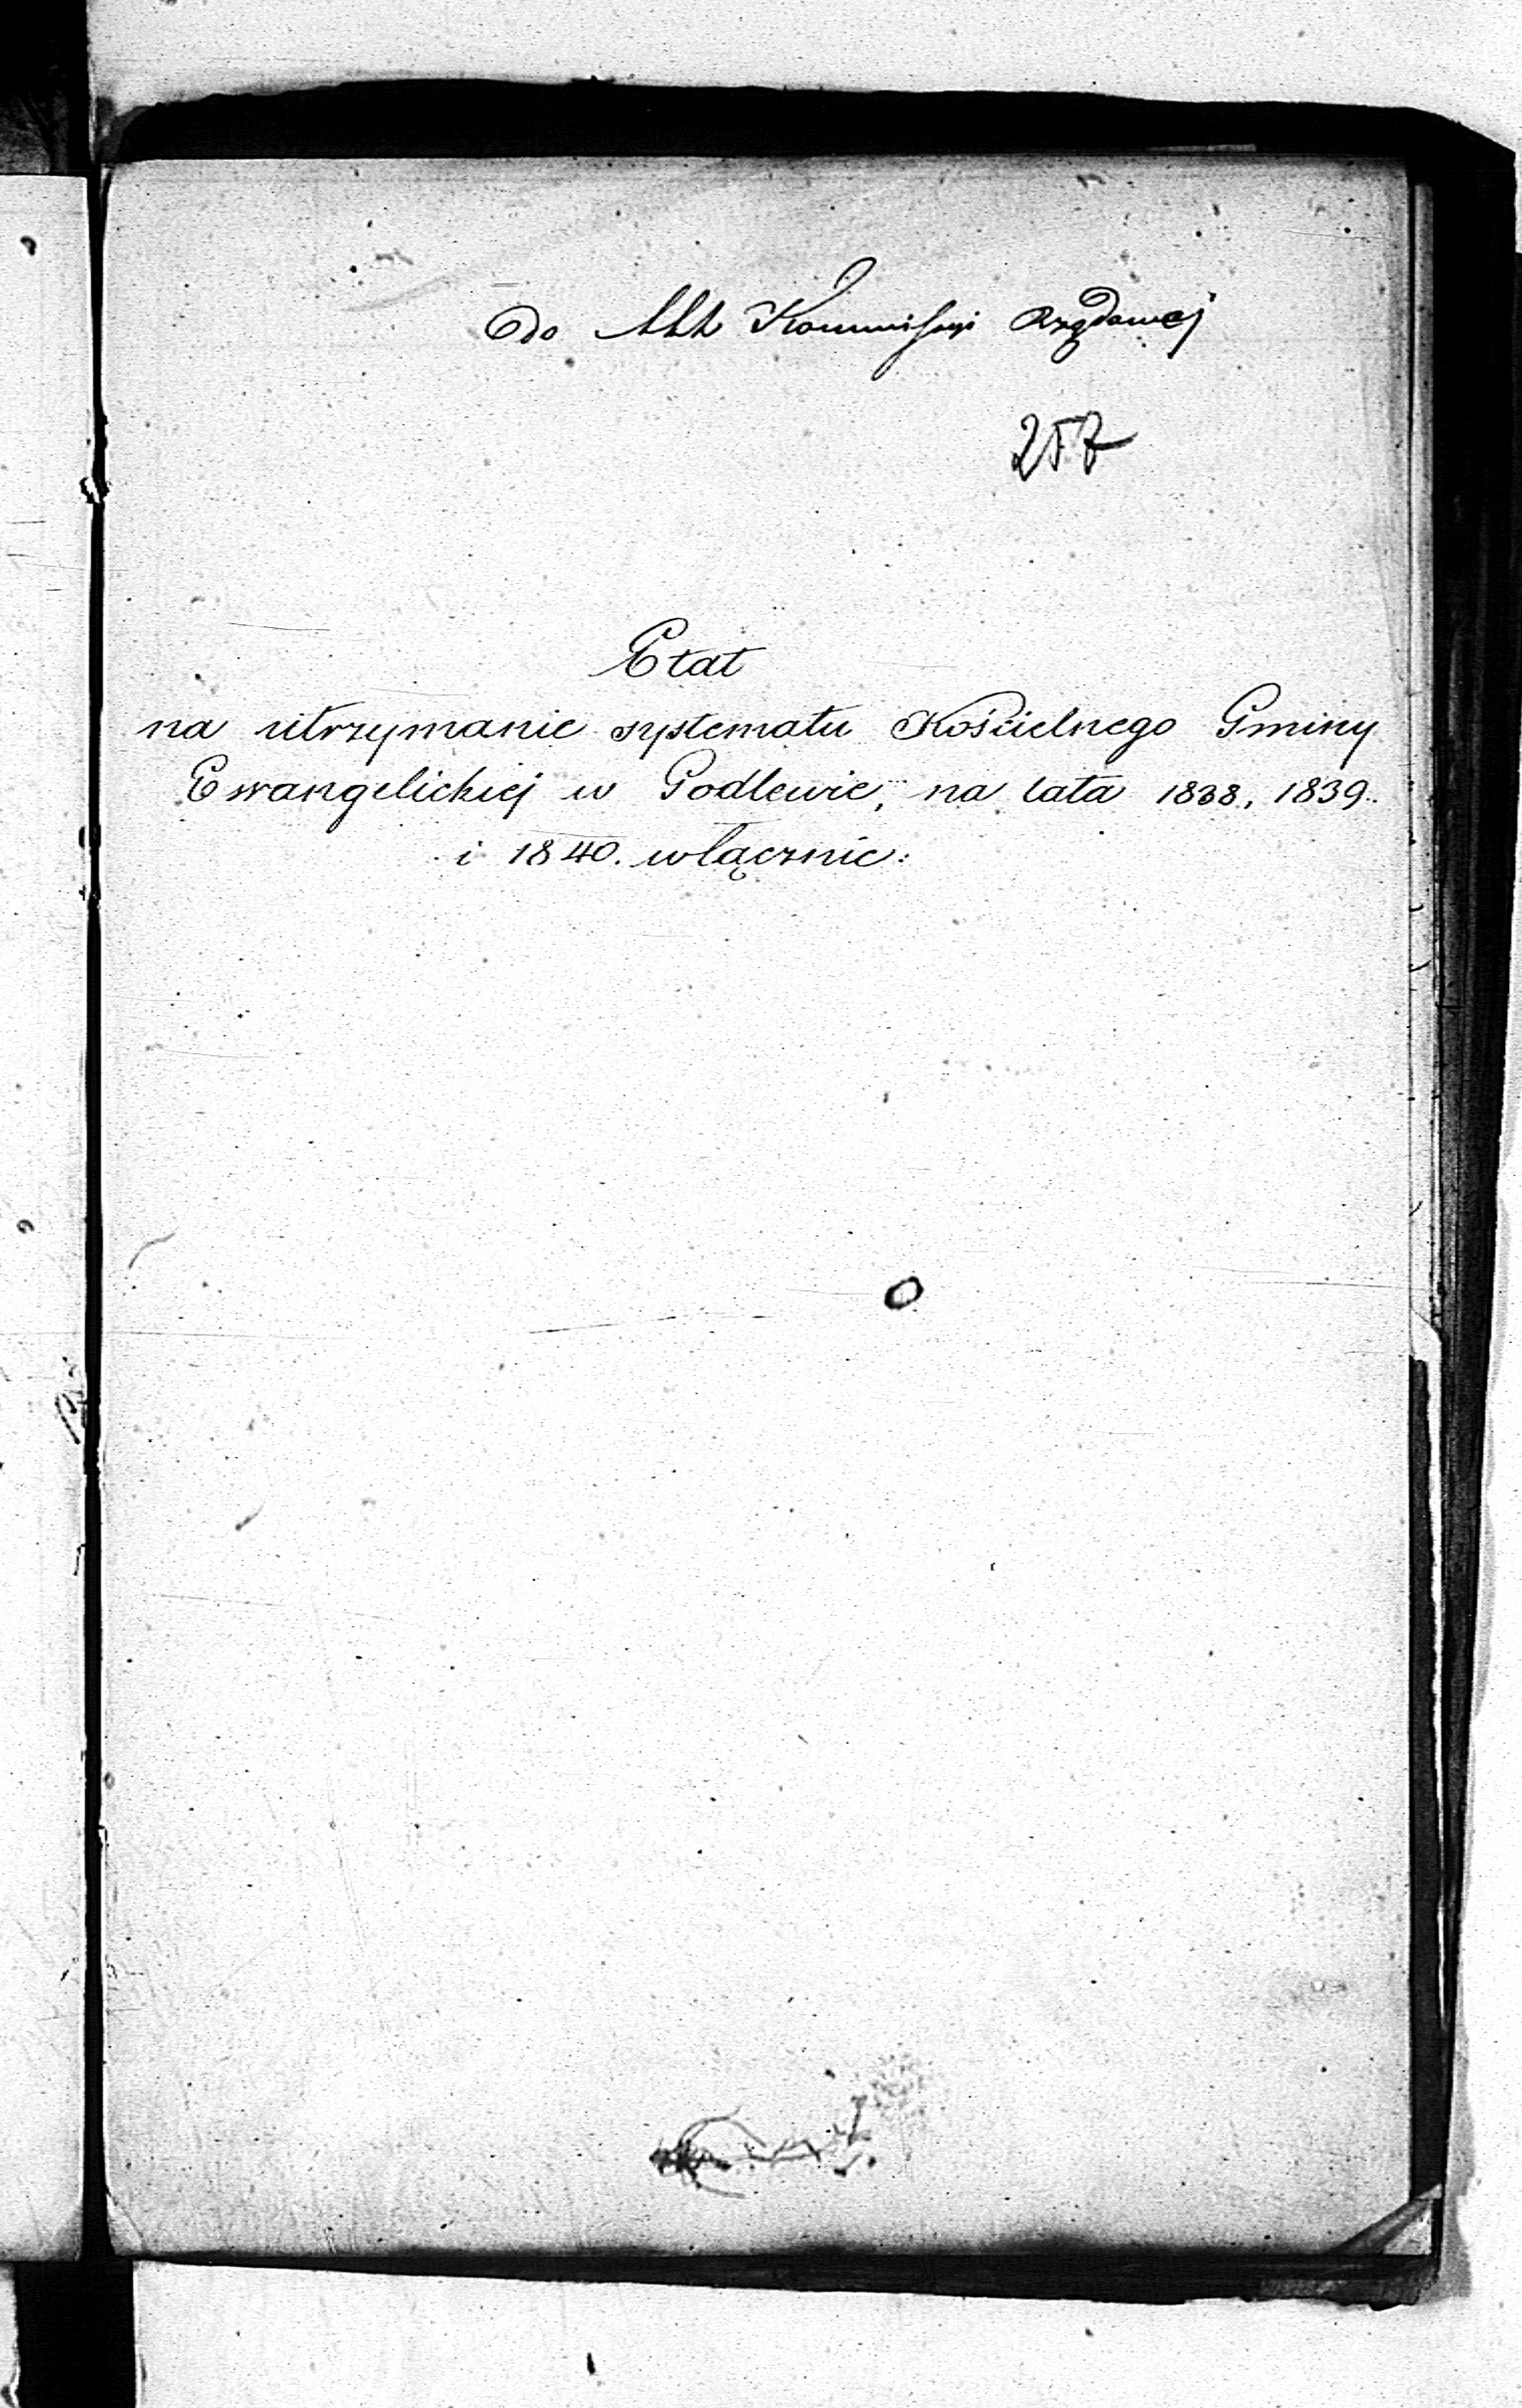 Do Akt Kommissyi Rządowej
257
Etat
na utrzymanie systematu Kościelnego Gminy
Ewangelickiej w Godlewie, na lata 1838, 1839.
i 1840. włącznie: